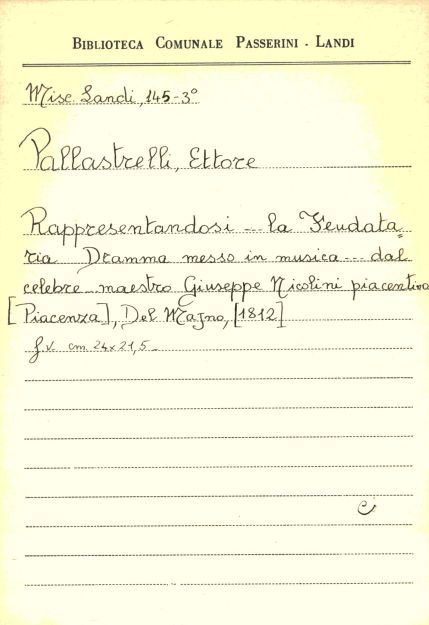 BIBLIOTECA COMUNALE PASSERINI - LANDI
Misc. Landi, 145-3°
Pallastrelli, Ettore
Rappresentandosi ... la Feudata=
ria Dramma messo in musica ... dal
celebre maestro Giuseppe Nicolini piacentino
[Piacenza], Del Majno, [1812]
f.v. cm. 24x21,5
C